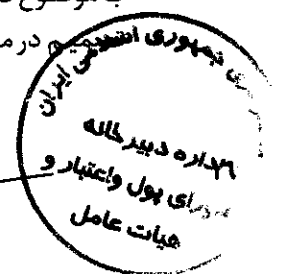 جمهوری اسلامی ایران
اداره دبیرخانه
پول واعتبار و
هیات عامل